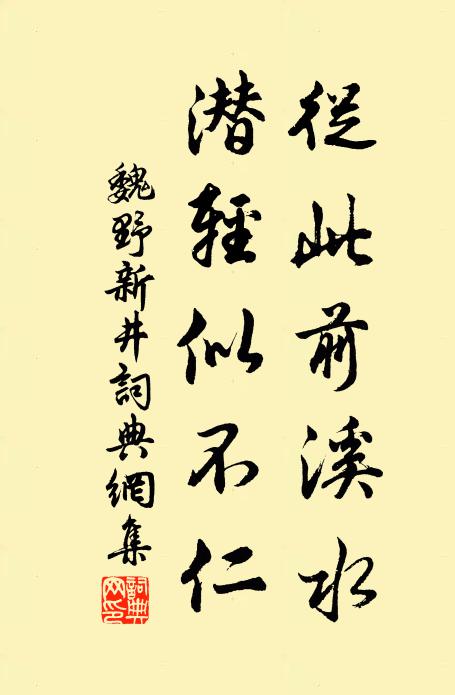 從此前溪水
潛輕似不仁
魏野新井詞典網集
詞典網印